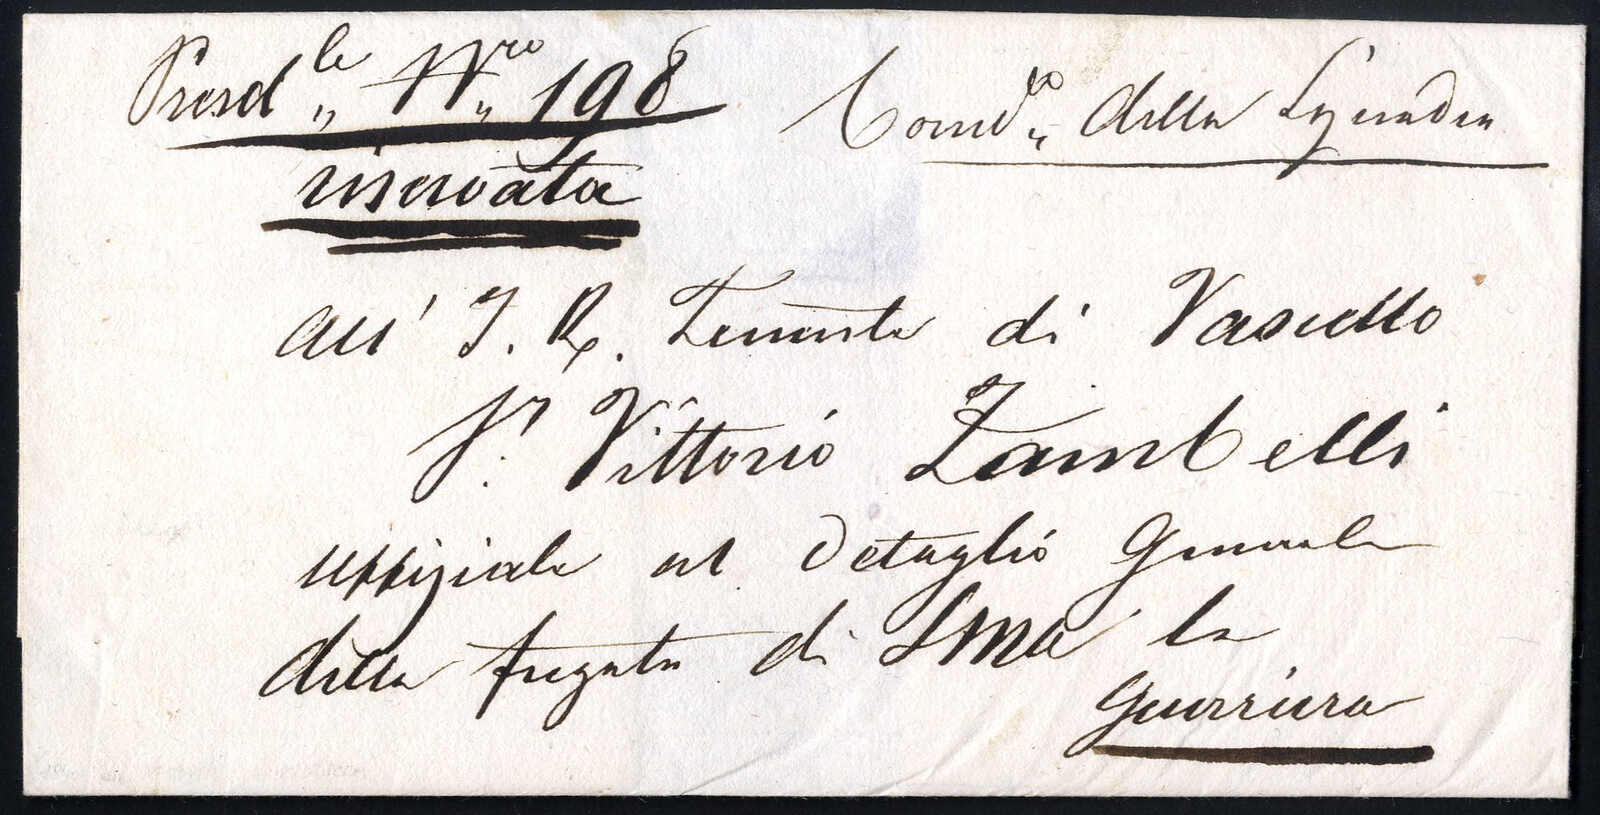 Presd.le Nro 198
Comd.o della Squadra
riservata
All' I. R. Tenente di Vascello
Sr. Vittorio Zambelli
uffiziale al Detaglio Generale
della fregata di SMa la
Guerriera